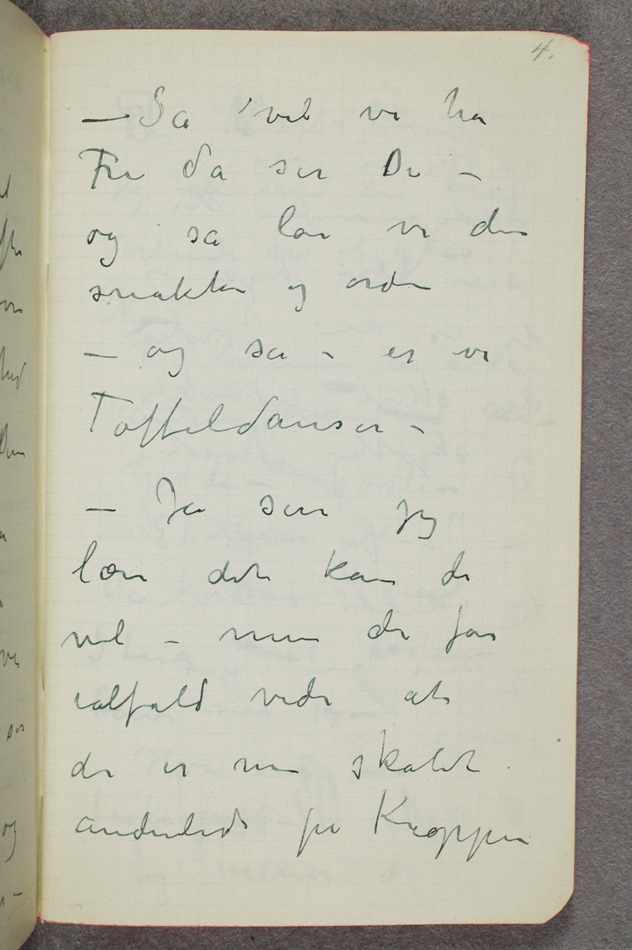 4.
– Så vil vi ha
Fru da ser De –
og så lar vi den
snakken og ordn
– og så – er vi
Toffeldanser –
– Ja ser jeg
lær det kan de
vel – men de får
ialfald vide at
de er nu skabt
anderleds på Kroppen